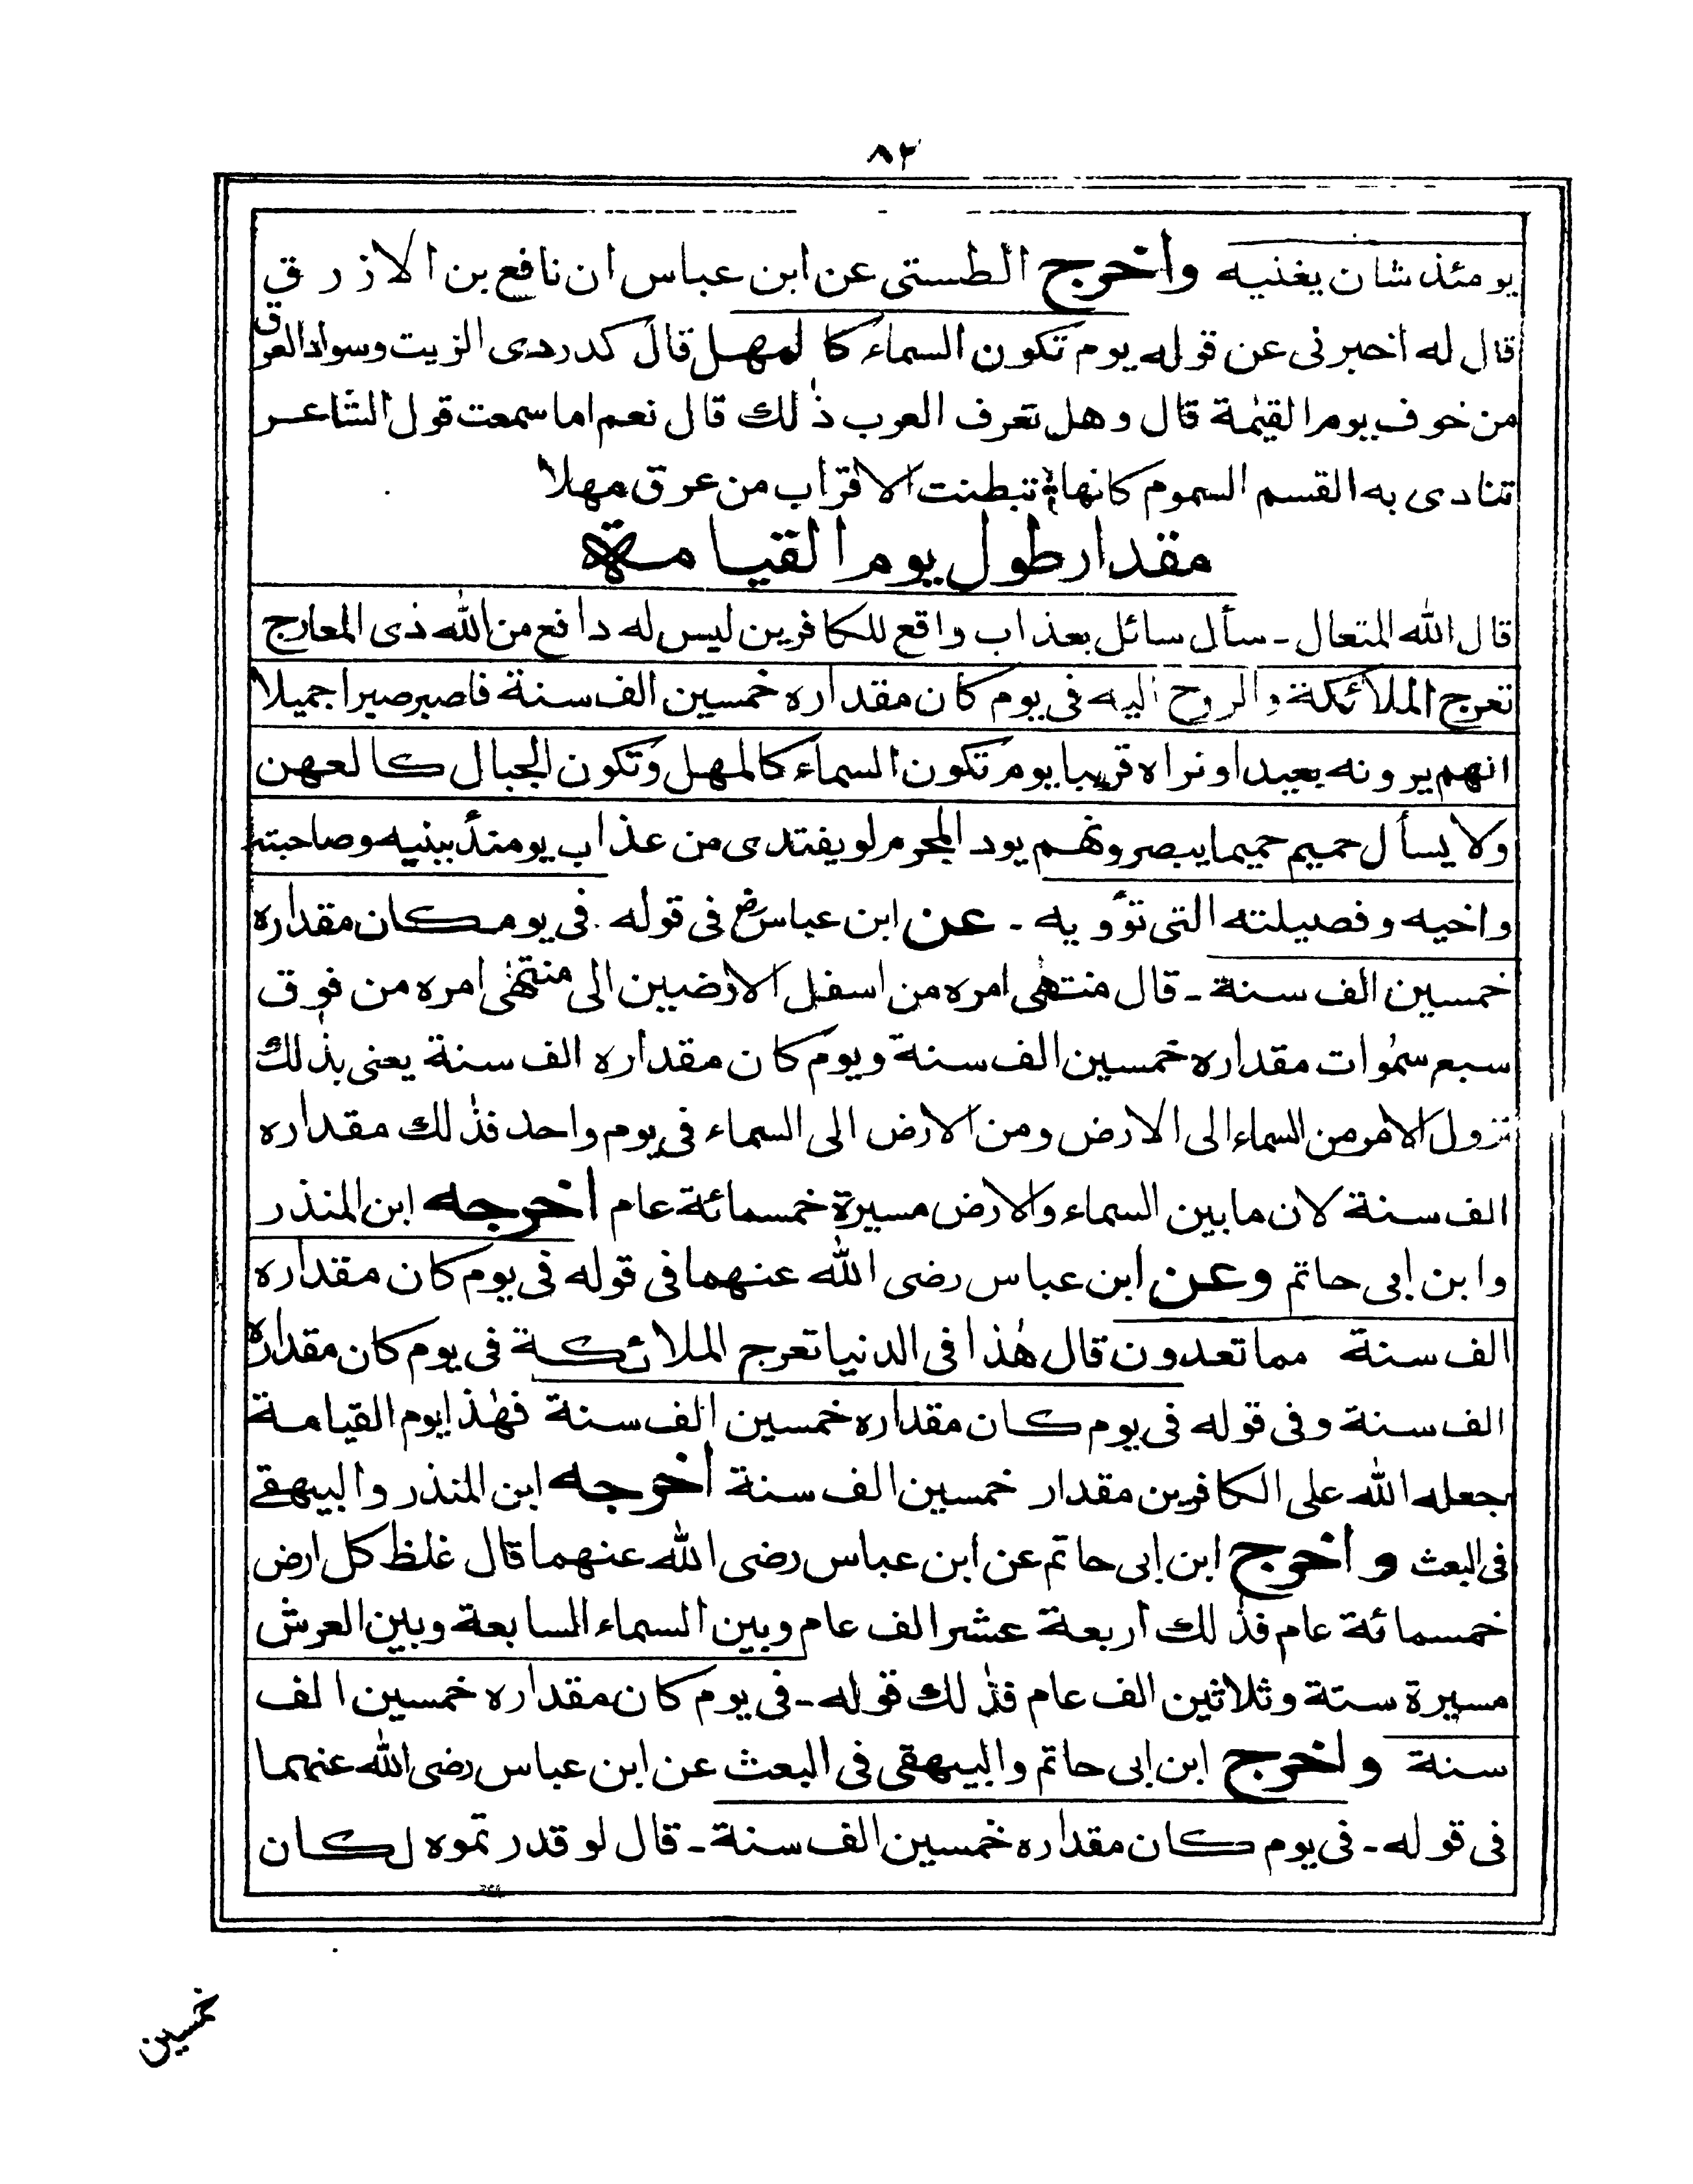 ٨٢
يومئذ شان يغنيه واخرج الطستى عن ابن عباس ان نافع بن الازرق
قال له اخبرنى عن قوله يوم تكون السماء كالمهل قال كدردى الزيت وسواد العرق
من خوف يوم القيٰمة قال وهل تعرف العرب ذٰلك قال نعم اما سمعت قول الشاعر
تنادى به القسم السموم كانها تبطنت الاقراب من عرق مهلا
مقدار طول يوم القيامة
قال الله المتعال ـ سأل سائل بعذاب واقع للكافرين ليس له دافع من الله ذى المعارج
تعرج الملائكة والروح اليه فى يوم كان مقداره خمسين الف سنة فاصبر صبرا جميلا
انهم يرونه بعيدا ونراه قريبا يوم تكون السماء كالمهل وتكون الجبال كالعهن
ولا يسأل حميم حميما يبصرونهم يود المجرم لو يفتدى من عذاب يومئذ ببنيه وصاحبته
واخيه وفصيلته التى تؤويه ـ عن ابن عباسؓ فى قوله فى يوم كان مقداره
خمسين الف سنة ـ قال منتهٰى امره من اسفل الارضين الى منتهٰى امره من فوق
سبع سمٰوات مقداره خمسين الف سنة ويوم كان مقداره الف سنة يعنى بذٰلك
نزول الامر من السماء الى الارض ومن الارض الى السماء فى يوم واحد فذٰلك مقداره
الف سنة لان ما بين السماء والارض مسيرة خمسمائة عام اخرجه ابن المنذر
وابن ابى حاتم وعن ابن عباس رضى الله عنهما فى قوله فى يوم كان مقداره
الف سنة مما تعدون قال هٰذا فى الدنيا تعرج الملائكة فى يوم كان مقداره
الف سنة وفى قوله فى يوم كان مقداره خمسين الف سنة فهٰذا يوم القيامة
جعله الله على الكافرين مقدار خمسين الف سنة اخرجه ابن المنذر والبيهقے
فى البعث واخرج ابن ابى حاتم عن ابن عباس رضى الله عنهما قال غلظ كل ارض
خمسمائة عام فذٰلك اربعة عشر الف عام وبين السماء السابعة وبين العرش
مسيرة ستة وثلاثين الف عام فذٰلك قوله ـ فى يوم كان مقداره خمسين الف
سنة واخرج ابن ابى حاتم والبيهقى فى البعث عن ابن عباس رضى الله عنهما
فى قوله ـ فى يوم كان مقداره خمسين الف سنة ـ قال لو قدرتموه لكان
خمسين